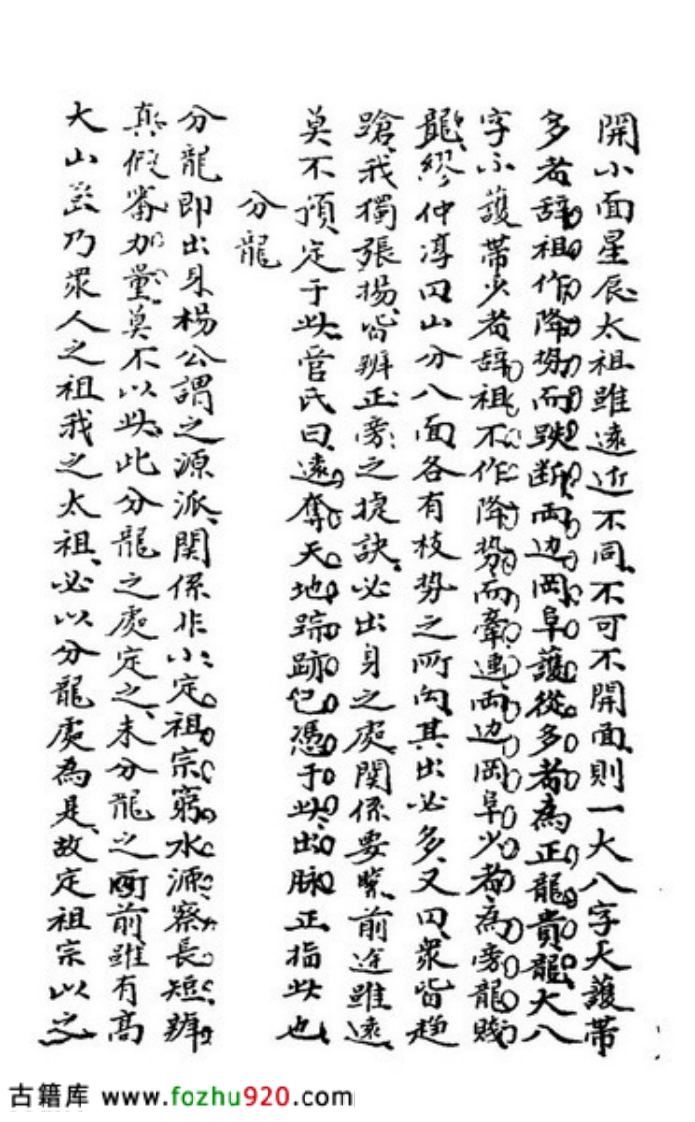 開小面星辰太祖雖遠近不同不可不開面則一大八字天護帶
多者辞祖作降势而跌断両边岡阜護從多者為正龍貴龍大八
字小護帶少者辞祖不作降势而牽連両边岡阜少者為旁龍賤
龍繆仲淳曰山分八面各有枝势之所向其出必多又曰衆皆趋
蹌我獨張揚皆辨正旁之捷訣必出身之處関係要緊前途雖遠
莫不預定于此管氏曰遠奪天地踪跡已憑于此出脉正指此也
分龍
分龍即出身楊公謂之源派関係非小定祖宗窮水源察長短辨
真假審加量莫不以此此分龍之處定之未分龍之所前雖有高
大山峦乃衆人之祖我之太祖必以分龍處為是故定祖宗以之
古籍库 www.fozhu920.com